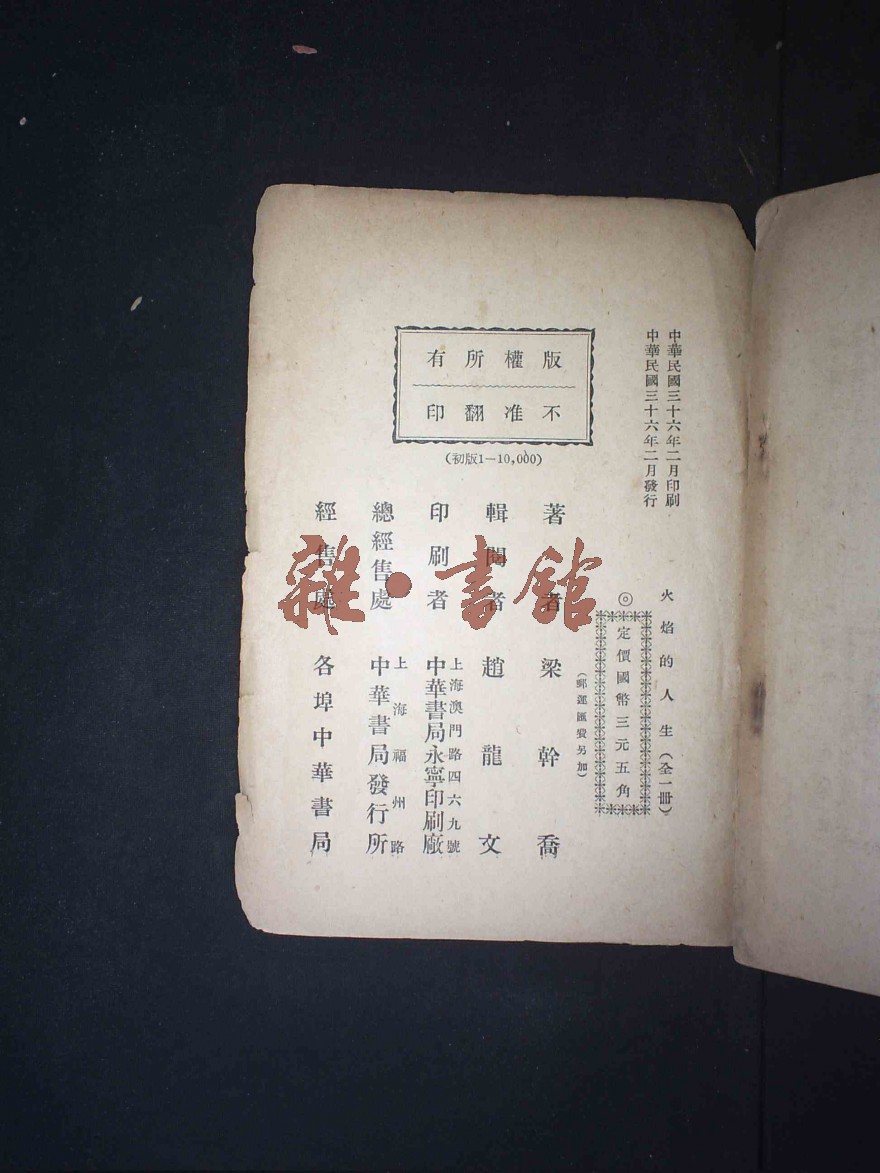 中華民國三十六年二月印刷
中華民國三十六年二月發行
火焰的人生（全一冊）
◎
定價國幣三元五角
（郵運匯費另加）
版權所有
不准翻印
（初版1—10,000）
著者 梁幹喬
輯閱者 趙龍文
印刷者 上海澳門路四六九號
中華書局永寧印刷廠
總經售處 上海福州路
中華書局發行所
經售處 各埠中華書局
雜·書館